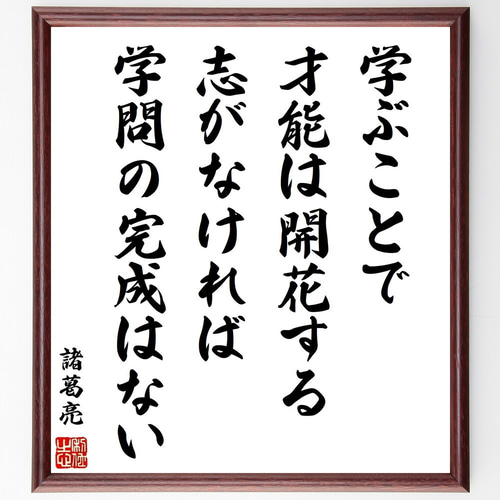 学ぶことで
才能は開花する
志がなければ
学問の完成はない
諸葛亮